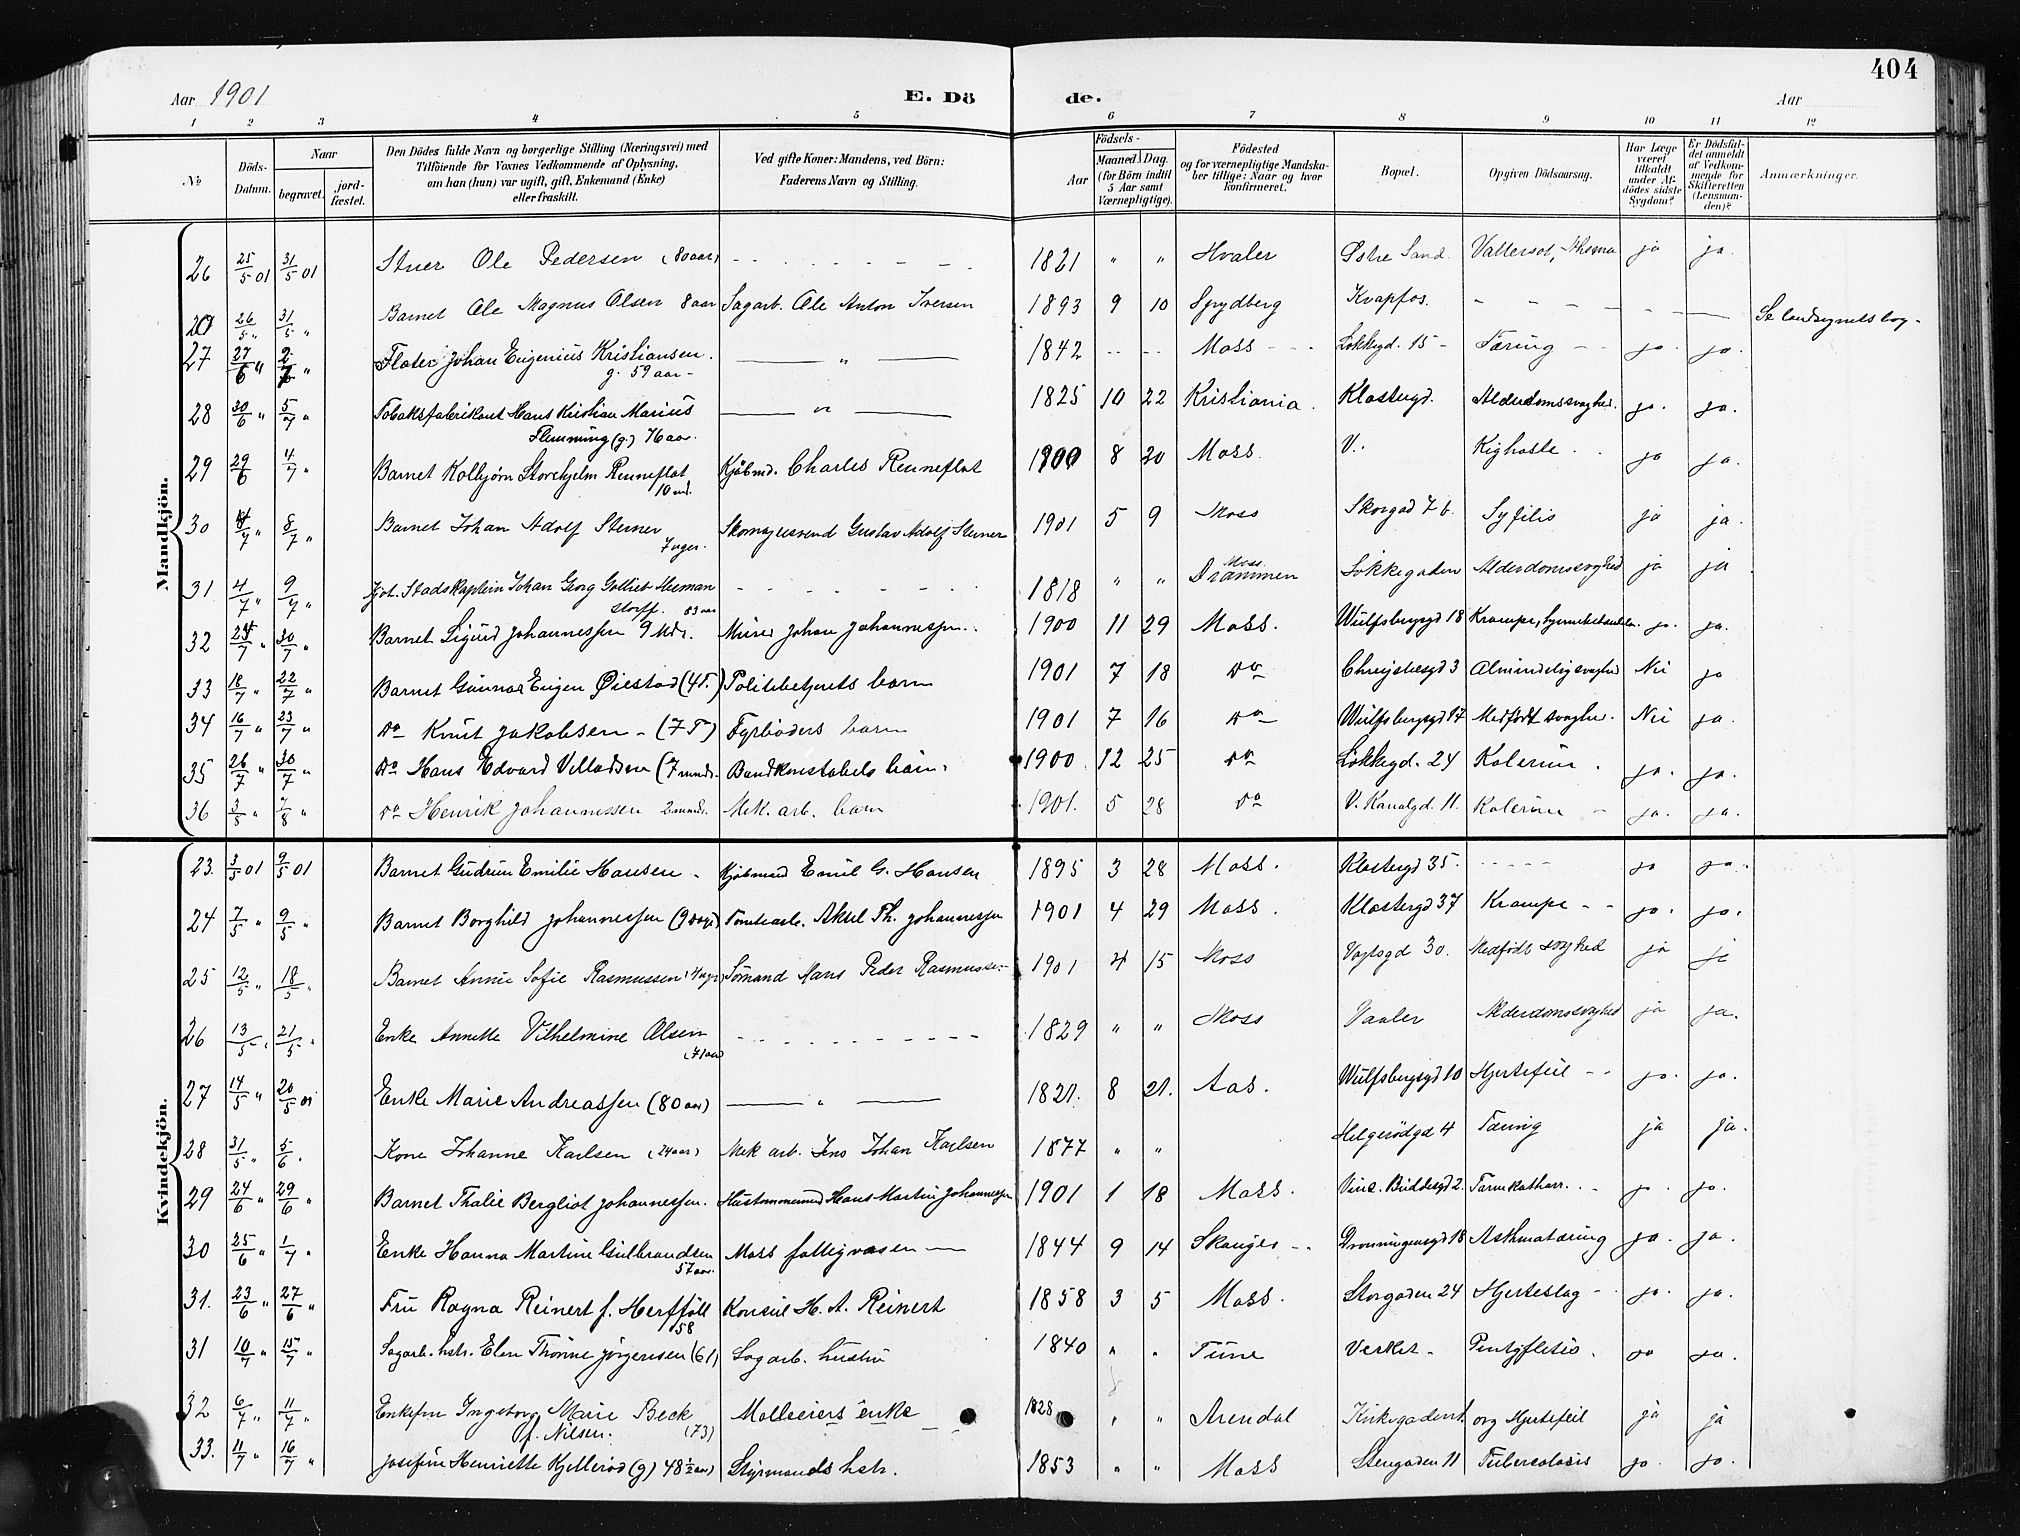 404
Aar 1901 E. Dö de. Aar
1 2 3 4 5 6 7 8 9 10 11 12
No
Döds-Datum.
Naar begravet. jord-fæstet.
Den Dödes fulde Navn og borgerlige Stilling (Næringsvei) med Tilföiende for Voxnes Vedkommende af Oplysning, om han (hun) var ugift, gift, Enkemand (Enke) eller fraskilt.
Ved gifte Koner: Mandens, ved Börn: Faderens Navn og Stilling.
Födsels-
Aar Maaned Dag. (for Börn indtil 5 Aar samt Værnepligtige).
Födested og for værnepligtige Mandskaber tillige: Naar og hvor konfirmeret.
Bopæl.
Opgiven Dödsaarsag.
Har Læge været tilkaldt under Afdödes sidste Sygdom?
Er Dödsfaldet anmeldt af Vedkommende for Skifteretten (Lensmanden)?
Anmærkninger.
Mandkjön.
26 25/5 01 31/5 01 Stuer Ole Pedersen (80 aar) 1821 " " Hvaler Østre Sand ja ja.
26/5 " 31/5 " Barnet Ole Magnus Olsen 8 aar Sagarb. Ole Anton Iversen 1893 9 10 Spydberg Kvapfos.
27 27/6 " 2/7 " Johan Eugenius Kristiansen. g. 59 aar - " 1842 Moss Løkkegd. 15 - Tæring ja. ja.
28 30/6 " 5/7 " Tobaksfabrikant Hans Kristian Marius Flemming (g.) 76 aar. 1825 10 22 Kristiania. Klostergd. Alderdomssvaghed. ja. ja.
29 29/6 4/7 " Barnet Kolbjørn Storhjelm Renneflot 10 md. Kjøbmd. Charles Renneflot 1900 8 20 Moss. V. Kighoste ja ja.
30 4/7 " 8/7 " Barnet Johan Adolf Sterner 7 uger. Skomagersvend Gustav Adolf Sterner 1901 5 9 Moss Skogad 7 b. Syfilis ja ja.
31 4/7 " 9/7 " Stadskaptein Johan Georg Gottlieb 83 aar 1818 " " Moss Drammen Løkkegaden Alderdomssvaghed ja ja
32 25/7 " 30/7 " Barnet Sigurd Johannessen 9 Mdr. Murer Johan Johannessen. 1900 11 29 Moss. Wulfsbergsgd 18 Krampe, ja. ja.
33 18/7 " 22/7 " Barnet Gunnar Eugen Øiestad (4 T.) Politibetjents barn 1901 7 18 Do Chrystiesgd 3 Almindelig svaghed Nei ja
34 16/7 " 23/7 " Do Knut Jakobsen - (7 T) Fyrbøders barn 1901 7 16 Do Wulfsbergsgd 17 Medfødt svaghed. Nei ja.
35 26/7 " 30/7 " Do Hans Edvard Villadsen (7 mnd. Bandkonstabels barn. 1900 12 25 Do Løkkegd. 24 Kolerine. ja. ja.
36 3/8 " 7/8 " Do Henrik Johannessen 2 mnd. Mek. arb. barn 1901. 5 28 Do V. Kanalgd. 11. Kolerine - ja. ja.
Kvindekjön.
23. 3/5 01 9/5 01 Barnet Gudrun Emilie Hansen - Kjøbmand Emil G. Hansen 1895 3 28 Moss. Klostergd 35. ja ja.
24 7/5 " 9/5 " Barnet Borghild Johannessen (9 dage) Tomtearb. Aksel Th. Johannessen 1901 4 29 Moss. Klostergd 37 Krampe - - ja. ja.
25 12/5 " 18/5 " Barnet Annie Sofie Rasmussen Sømand Hans Peder Rasmussen 1901 4 15 Moss Vogtsgd 30. Medfødt svaghed ja ja
26 13/5 " 21/5 " Enke Annette Vilhelmine Olsen (71 aar) 1829 " " Moss Vaaler Alderdomssvaghed ja ja.
27 14/5 " 20/5 01 Enke Marie Andreassen (80 aar) " 1821. 8 21. Aas. Wulfsbergsgd 10 Hjertefeil - - ja. ja.
28 31/5 " 5/6 " Kone Johanne Karlsen (24 aar) Mek arb. Jens Johan Karlsen 1877 " " Helgerødgd 4 Tæring ja ja.
29 24/6 " 29/6 " Barnet Thalie Bergliot Johannessen. Hustømmermand Hans Martin Johannessen 1901 1 18 Moss. Vinc. Buddesgd 2. Tarmkatharr. ja. ja.
30 25/6 " 1/7 " Enke Hanna Martine Gulbrandsen 57 aar. Moss fattigvæsen 1844 9 14 Skauger - Dronningensgd 18 Asthmatæring ja. ja.
31. 23/6 " 27/6 " Fru Ragna Reinert f. Herfføll 58 Konsul H. A. Reinert 1858 3 5 Moss. Storgaden 24 Hjerteslag - ja. ja.
31 10/7 " 15/7 " Sagarb. hstr. Elen Thorine Jørgensen (61) Sagarb. hustru 1840 " " Tune Verket - ja ja.
32 6/7 " 11/7 " Enkefru Ingeborg Marie Beck f. Nilsen. (73) Mølleeiers enke 1828 " " Arendal Kirkegaden org Hjertefeil ja ja
33. 11/7 " 16/7 " Josefine Henriette Kjellerød (g) 48 1/2 aar) Styrmands hstr. 1853 " " Moss Stengaden 11 Tuberculosis ja. ja.